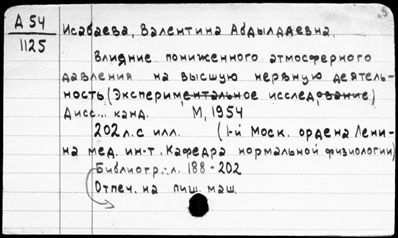 А 54
1125
Исабаева, Валентина Абдылдаевна.
Влияние пониженного атмосферного
давления на высшую нервную деятель-
ность. (Экспериментальное исследование)
Дисс... канд. М, 1954
202 л. с илл. (1-й Моск. ордена Лени-
на мед. ин-т. Кафедра нормальной физиологии)
Библиогр.: л. 188-202
Отпеч. на пиш. маш.